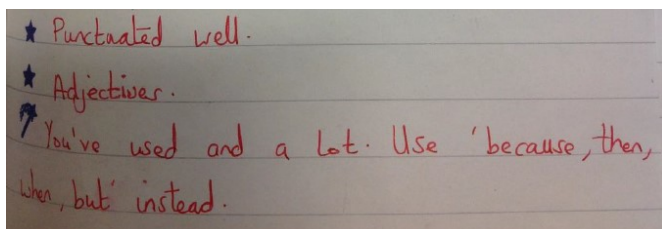 ★ Punctuated well.
★ Adjectives.
You've used and a lot. Use 'because, then,
when, but' instead.